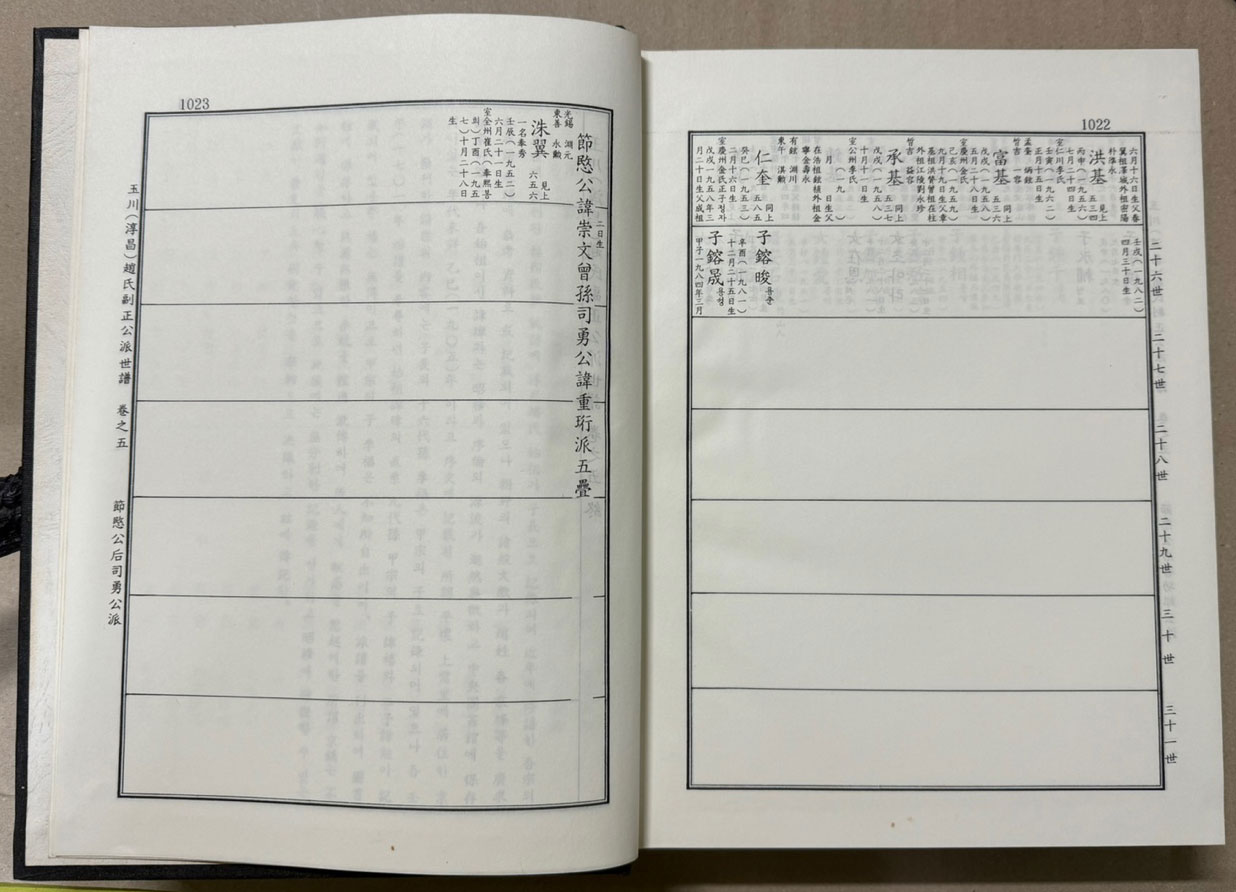 1022
二十六世
二十七世
二十八世
二十九世
三十世
三十一世
六月十六日生父春
翼祖澤城外祖密陽
朴澤永
洪基 見上 五三四
丙申(一九五六)
七月二十四日生
室仁川李氏
壬寅(一九六二)
正月十五日生
孟奎 炳鎔
哲吉 一容
富基 同上 五三四
戊戌(一九五八)
五月二十八日生
室慶州金氏
己亥(一九五九)
九月十九日生父章
基祖洪贊曾祖在柱
外祖江陵劉永珍
哲吉 益容
承基 同上 五三七
戊戌(一九五八)
十月十一日生
室公州李氏
(一九 )
月 日生父
在浩祖鍾植外祖金
寧金壽永
有鎔 淵川
東午 淇勳
仁奎 同上 五八五
癸巳(一九五三)
二月十六日生
室慶州金氏正子
戊戌一九五八年三
月二十日生父成祖
壬戌(一九八二)
四月三十日生
子鎔晙 용준
辛酉(一九八一)
十二月二十五日生
子鎔晟 용성
甲子一九八四年三月
1023
二日生
節愍公諱崇文曾孫司勇公諱重珩派五疊
光錫 淵元
東善 永勳
洙翼 見上 六五六
一名奉秀
壬辰(一九五二)
六月二十一日生
室全州崔氏(奉熙 봉
희)丁酉(一九五
七)十月二十八日
生
玉川(淳昌)趙氏副正公派世譜 卷之五 節愍公后司勇公派